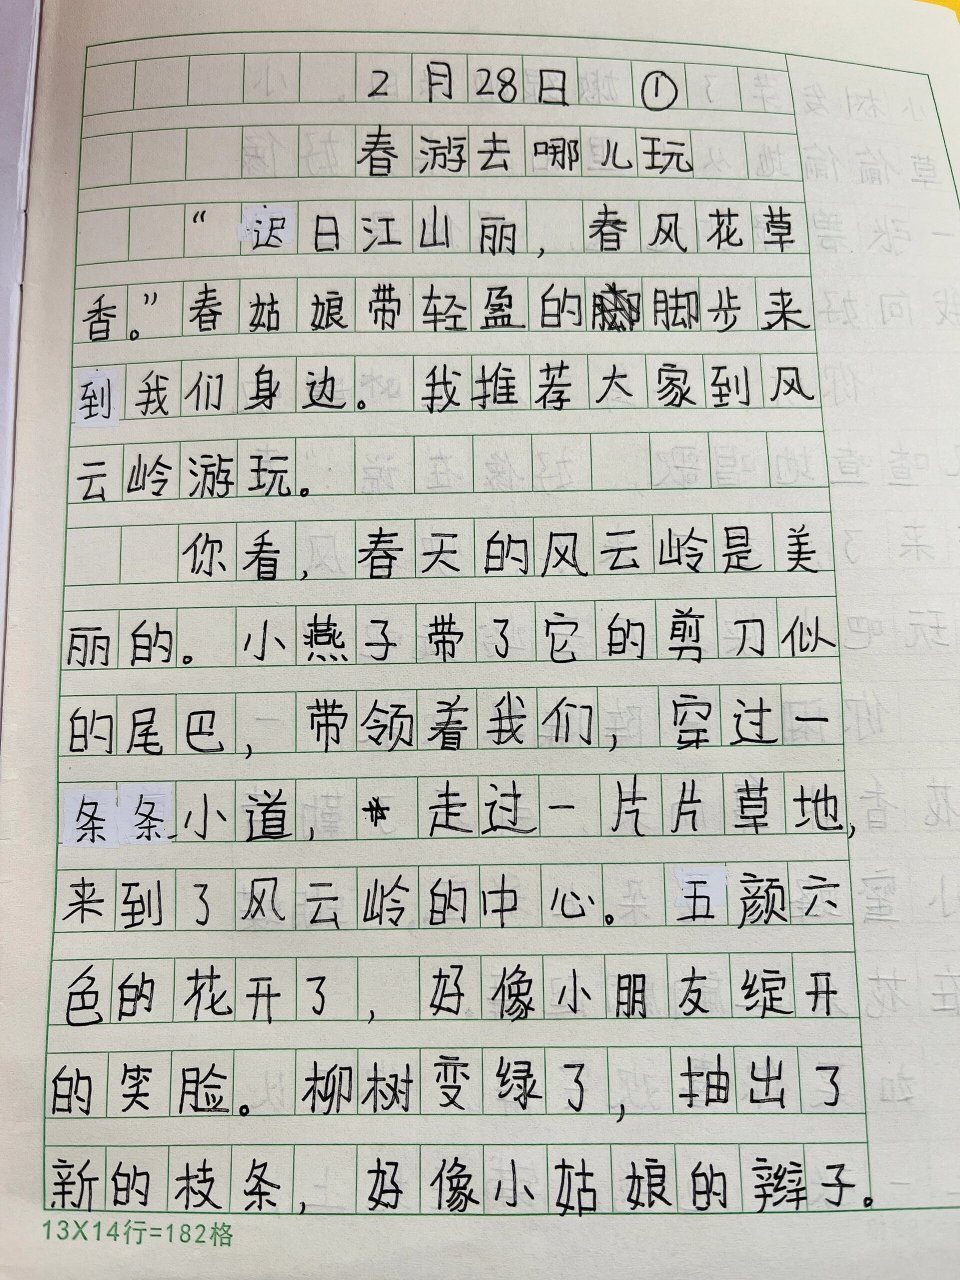 2月28日 ①
春游去哪儿玩
“迟日江山丽，春风花草
香。”春姑娘带轻盈的脚步来
到我们身边。我推荐大家到风
云岭游玩。
你看，春天的风云岭是美
丽的。小燕子带了它的剪刀似
的尾巴，带领着我们，穿过一
条条小道，走过一片片草地，
来到了风云岭的中心。五颜六
色的花开了，好像小朋友绽开
的笑脸。柳树变绿了，抽出了
新的枝条，好像小姑娘的辫子。
13X14行=182格